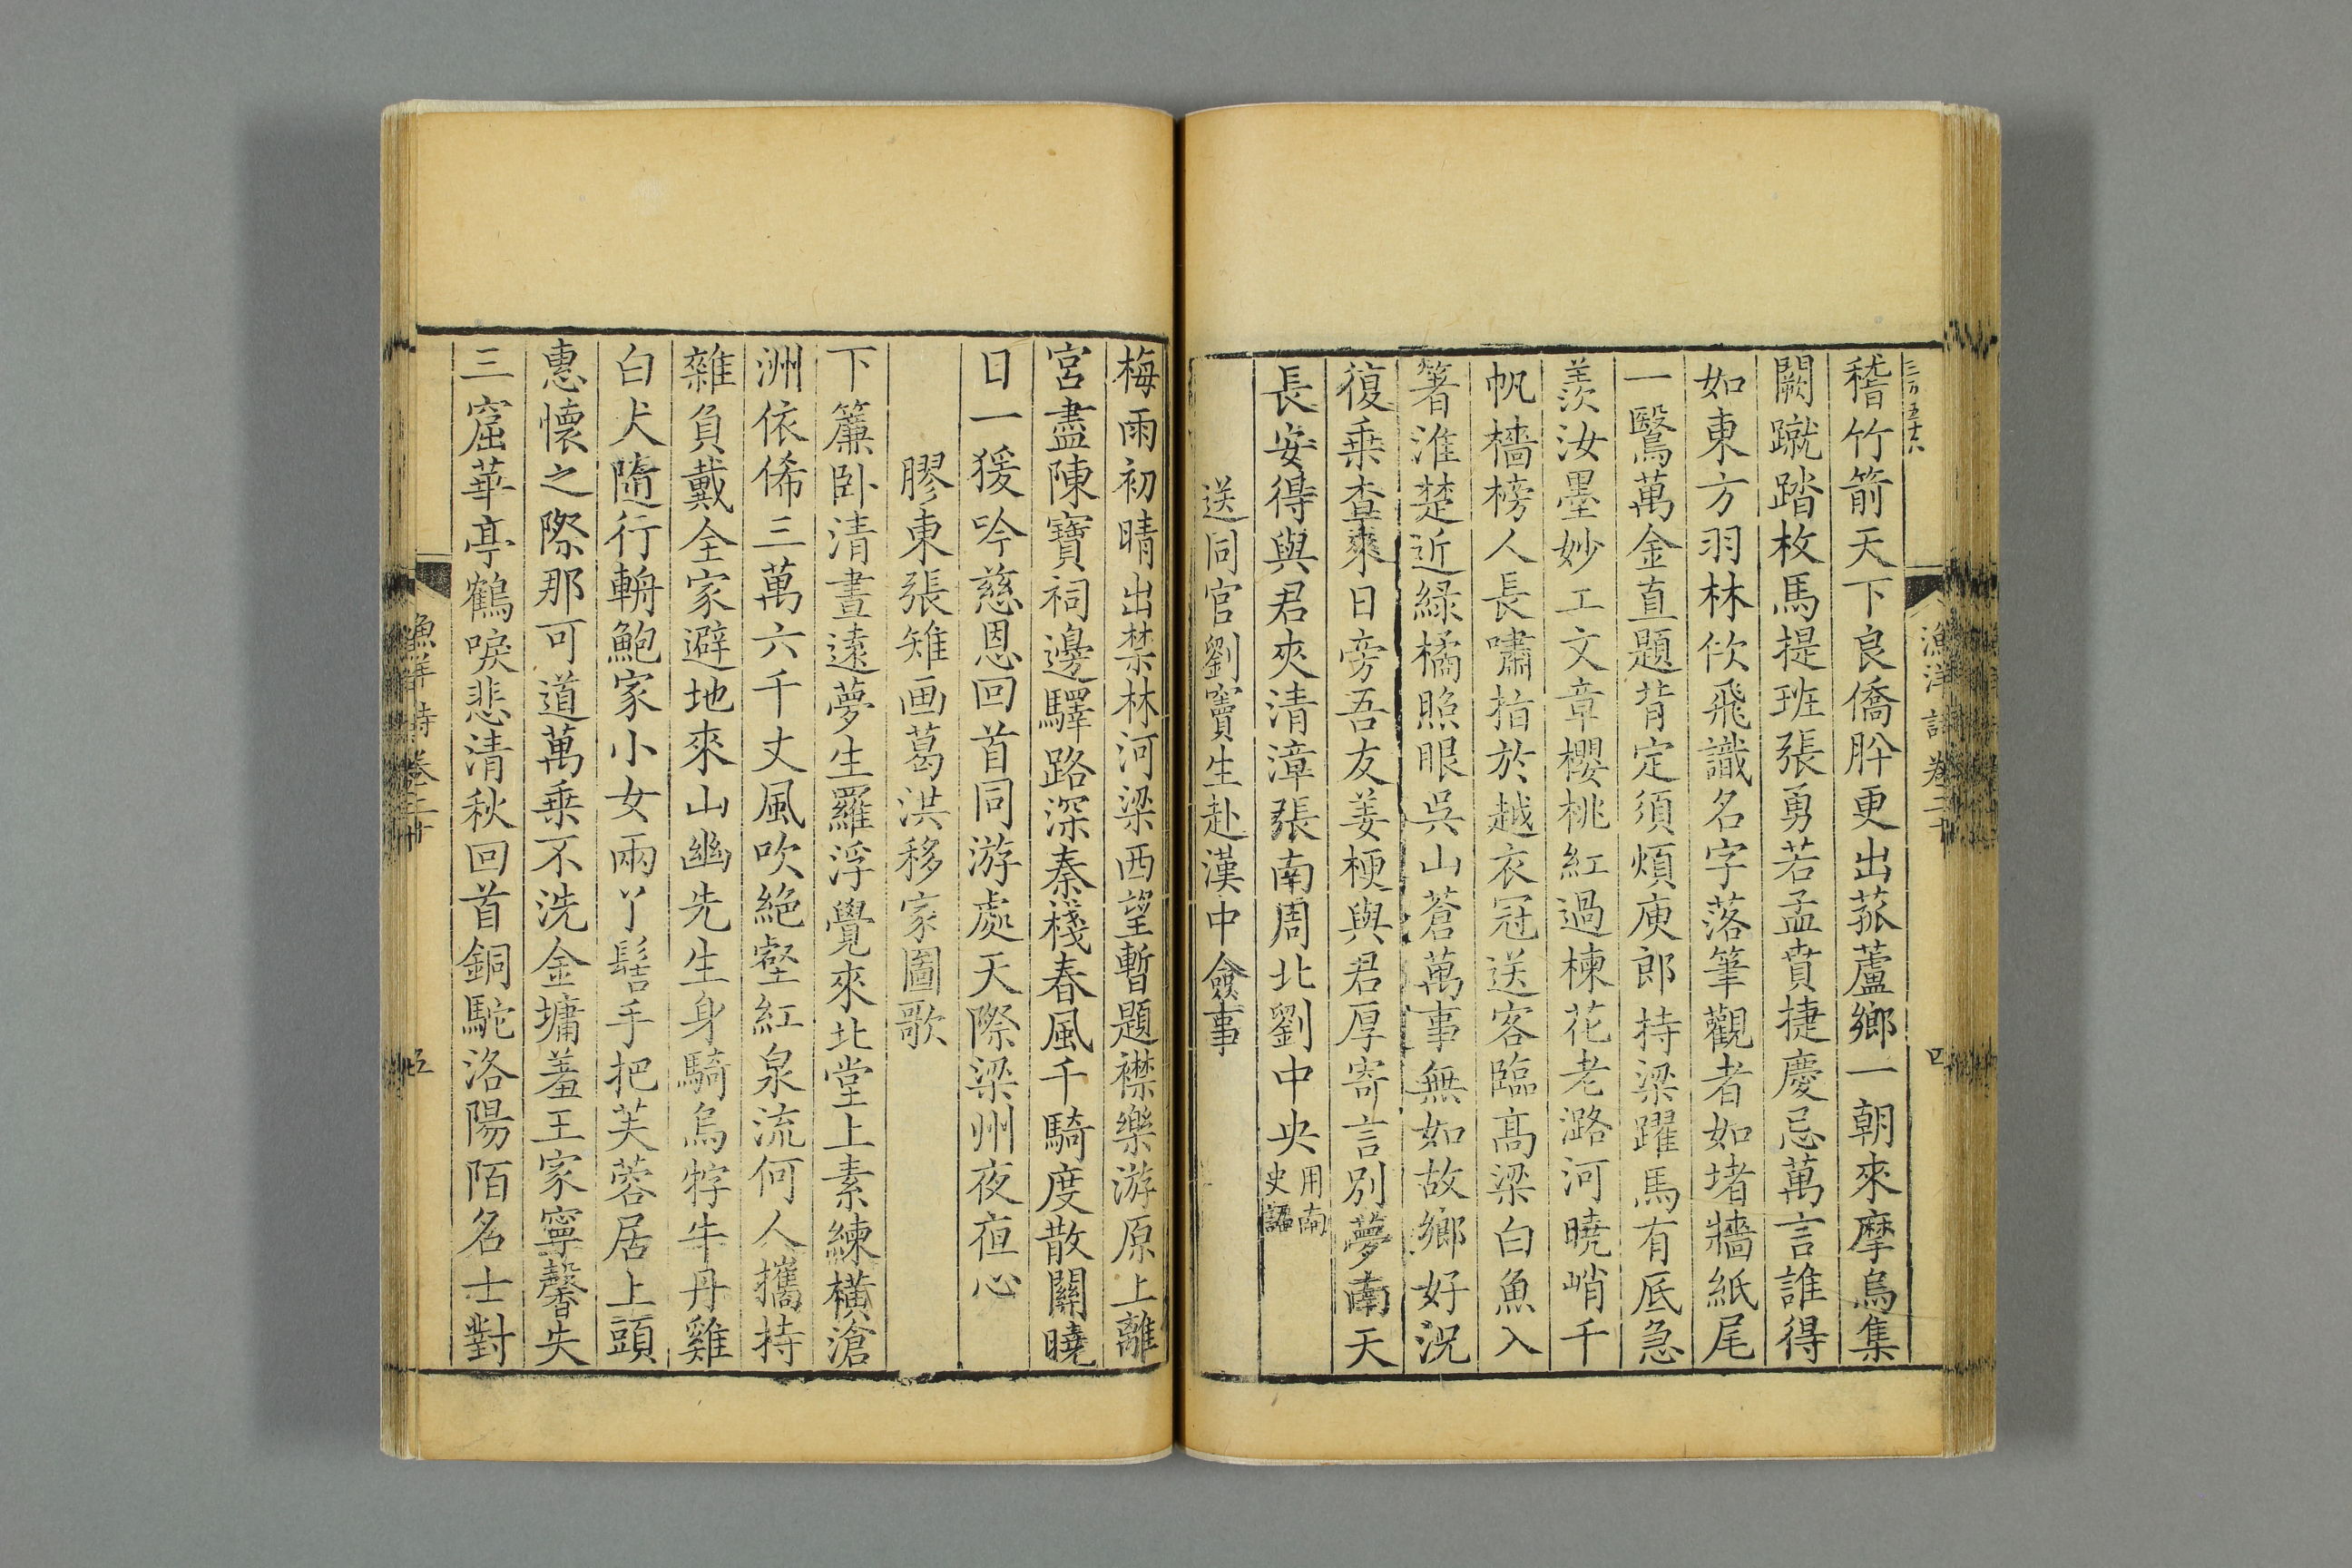 稽竹箭天下良僑肸更出菰蘆鄉一朝來摩烏集
闕蹴踏枚馬提班張勇若孟賁捷慶忌萬言誰得
如東方羽林佽飛識名字落筆觀者如堵牆紙尾
一鷖萬金直題背定須煩庾郎持梁躍馬有底急
羨汝墨妙工文章櫻桃紅過楝花老潞河曉峭千
帆檣榜人長嘯拈於越衣冠送客臨高梁白魚入
箸淮楚近綠橘照眼吳山蒼萬事無如故鄉好況
復乗查乘日旁吾友姜梗與君厚寄言別夢南天
長安得與君夾清漳張南周北劉中央用南史語
送同官劉竇生赴漢中僉事
漁洋詩卷二十
四
梅雨初晴出禁林河梁西望暫題襟樂游原上離
宮盡陳寶祠邊驛路深秦棧春風千騎度散關曉
日一猨吟慈恩回首同游處天際梁州夜夜心
膠東張雉画葛洪移家圖歌
下簾卧清晝遠夢生羅浮覺來北堂上素練橫滄
洲依俙三萬六千丈風吹絶壑紅泉流何人攜持
雜負戴全家避地來山幽先生身騎烏牸牛丹雞
白犬隨行輈鮑家小女兩丫髻手把芙蓉居上頭
惠懷之際那可道萬乗不洗金墉羞王家寧馨失
三窟華亭鶴唳悲清秋回首銅駝洛陽陌名士對
漁洋詩卷二十
五